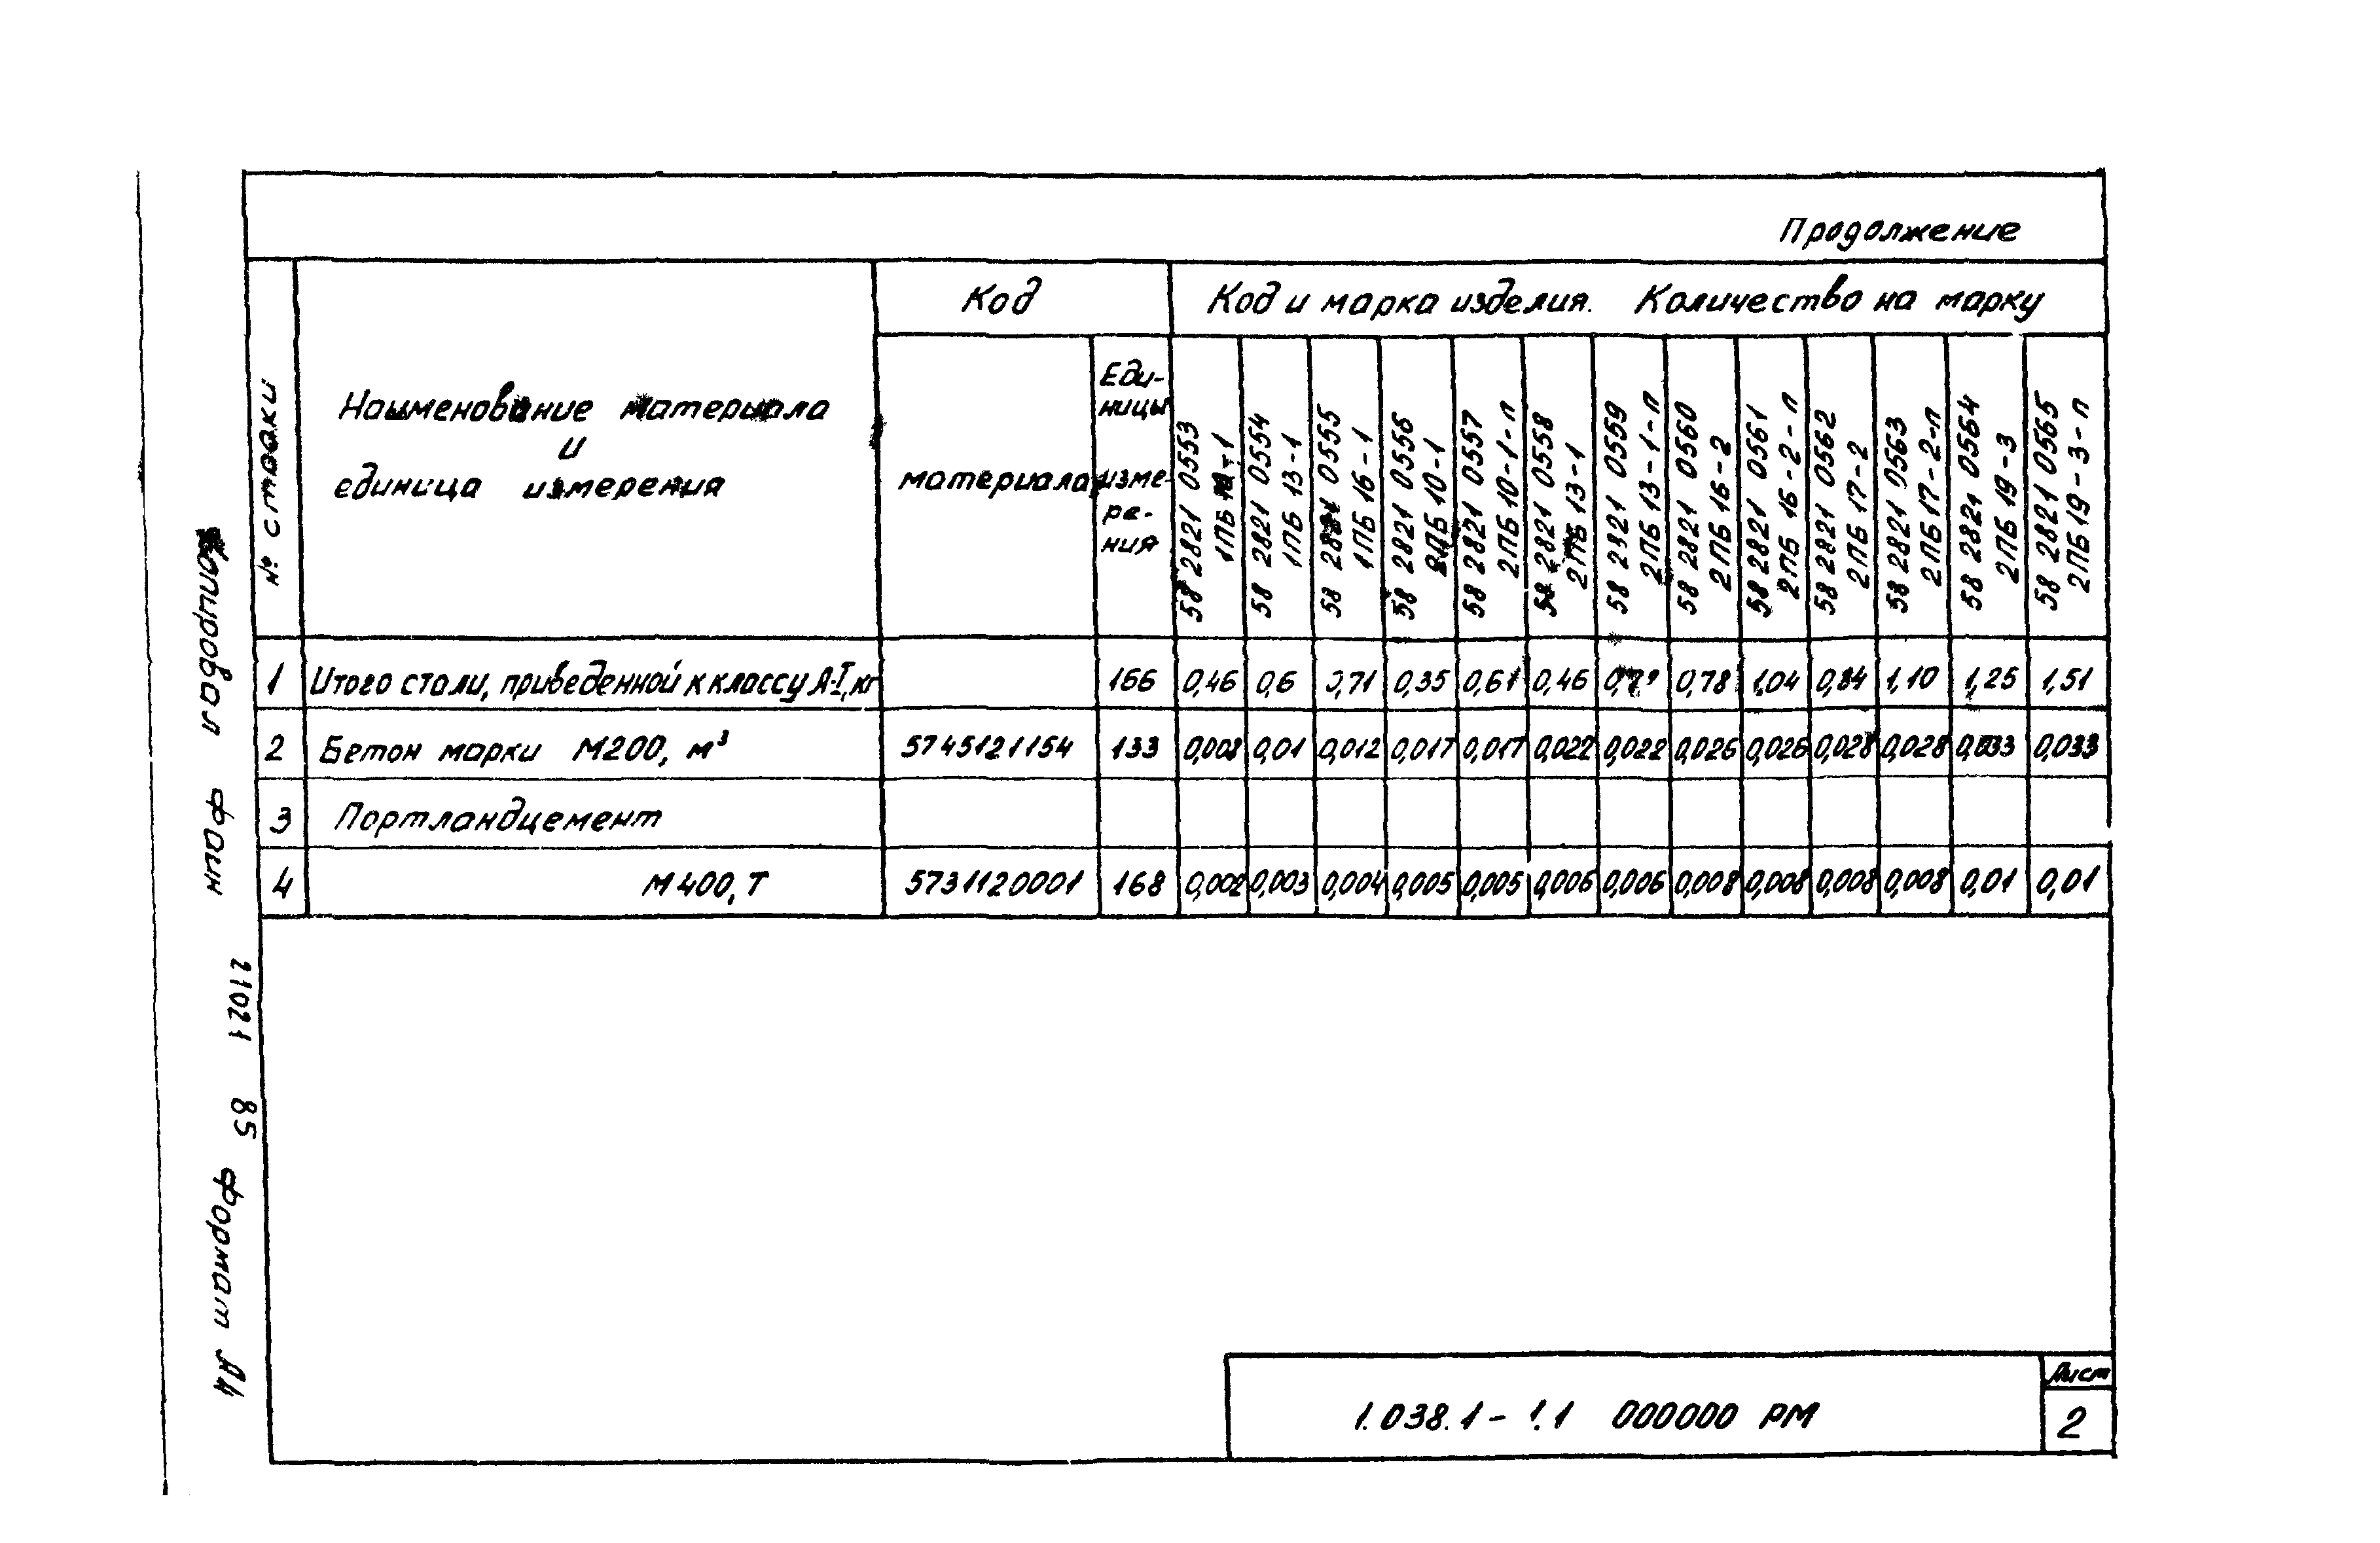 Продолжение
№ строки
Наименование материала
и
единица измерения
Код
Код и марка изделия. Количество на марку
материала
Еди-
ницы
изме-
ре-
ния
58 2821 0553
1ПБ 10-1
58 2821 0554
1ПБ 13-1
58 2821 0555
1ПБ 16-1
58 2821 0556
2ПБ 10-1
58 2821 0557
2ПБ 10-1-п
58 2821 0558
2ПБ 13-1
58 2821 0559
2ПБ 13-1-п
58 2821 0560
2ПБ 16-2
58 2821 0561
2ПБ 16-2-п
58 2821 0562
2ПБ 17-2
58 2821 0563
2ПБ 17-2-п
58 2821 0564
2ПБ 19-3
58 2821 0565
2ПБ 19-3-п
1 Итого стали, приведенной к классу А-I, кг 166 0,46 0,6 0,71 0,35 0,61 0,46 0,78 1,04 0,84 1,10 1,25 1,51
2 Бетон марки М200, м³ 5745121154 133 0,008 0,01 0,012 0,017 0,017 0,022 0,022 0,026 0,026 0,028 0,028 0,033 0,033
3 Портландцемент
4 М400, Т 5731120001 168 0,002 0,003 0,004 0,005 0,005 0,006 0,006 0,008 0,008 0,008 0,008 0,01 0,01
1.038.1-1.1 000000 РМ
Лист
2
Копировал Фаин 21021 85 Формат А4